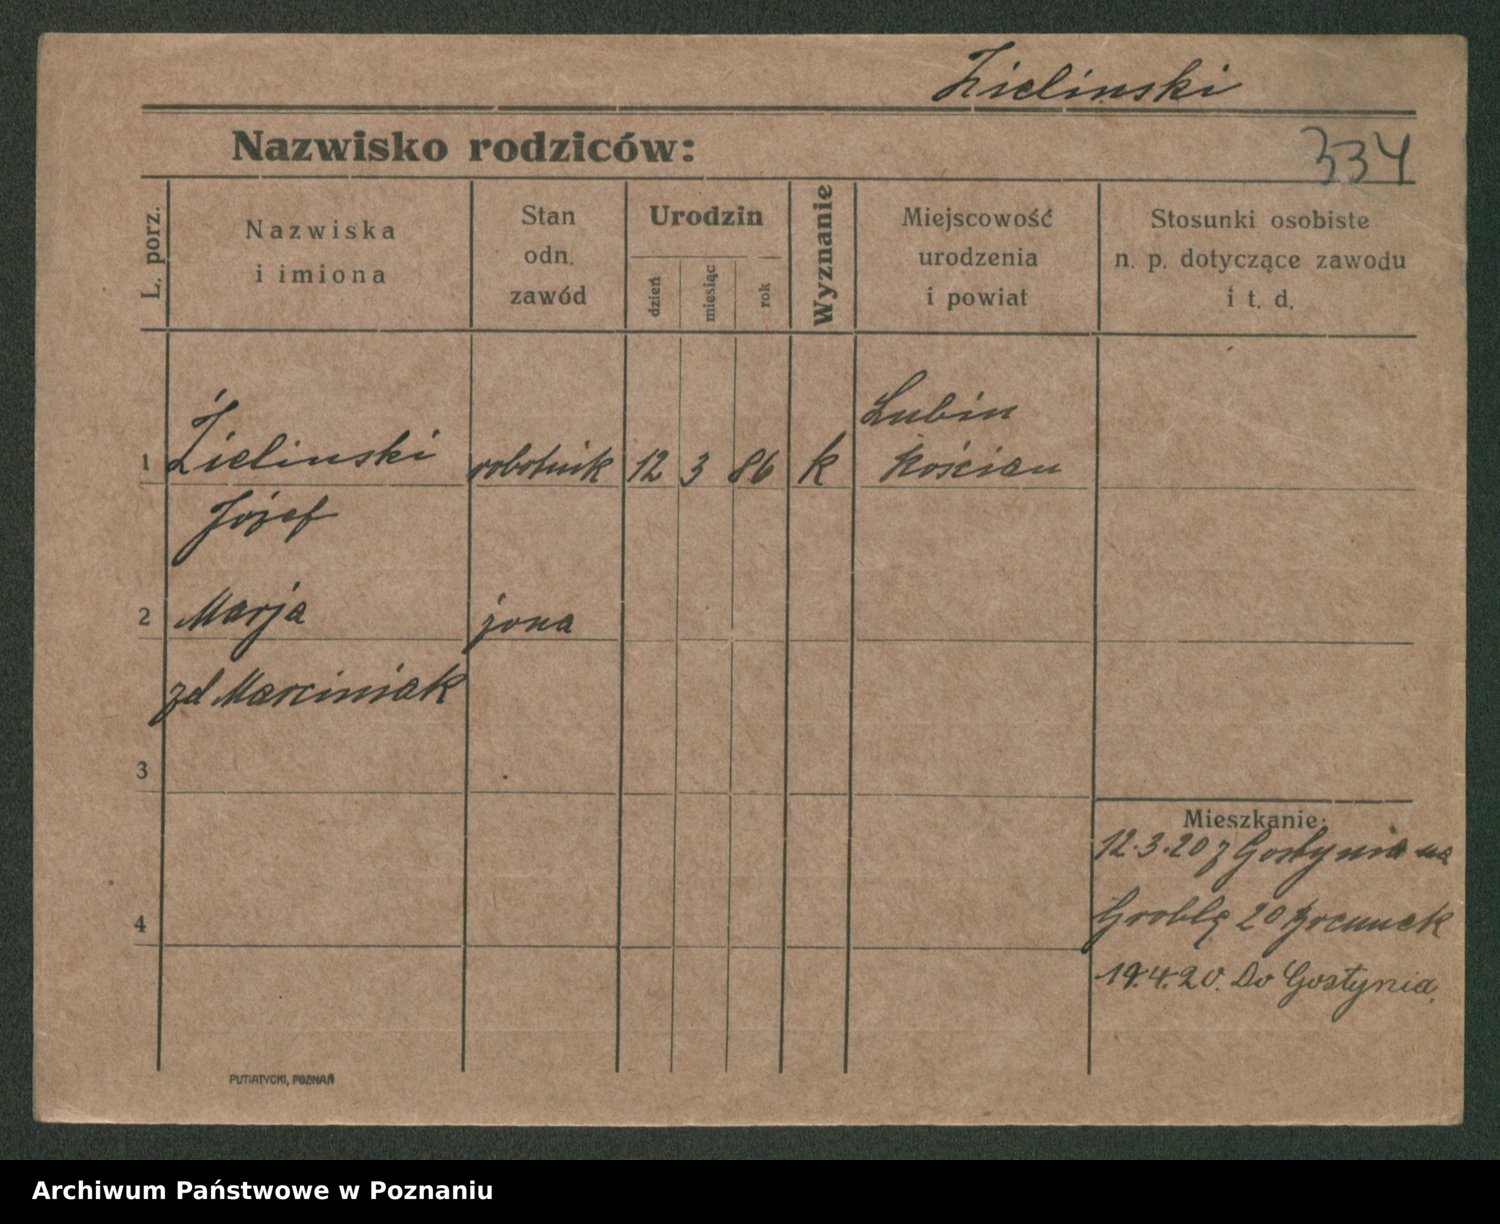 Zielinski
Nazwisko rodziców:
334
L. porz.
Nazwiska
i imiona
Stan
odn.
zawód
Urodzin
dzień
miesiąc
rok
Wyznanie
Miejscowość
urodzenia
i powiat
Stosunki osobiste
n. p. dotyczące zawodu
i t. d.
Lubin
1 Zielinski robotnik 12 3 86 k Kościan
Józef
2 Marja żona
zd Marciniak
3
Mieszkanie:
12.3.20 z Gostynia na
Groblę 20
4
19.4.20. Do Gostynia.
PUTIATYCKI, POZNAŃ
Archiwum Państwowe w Poznaniu